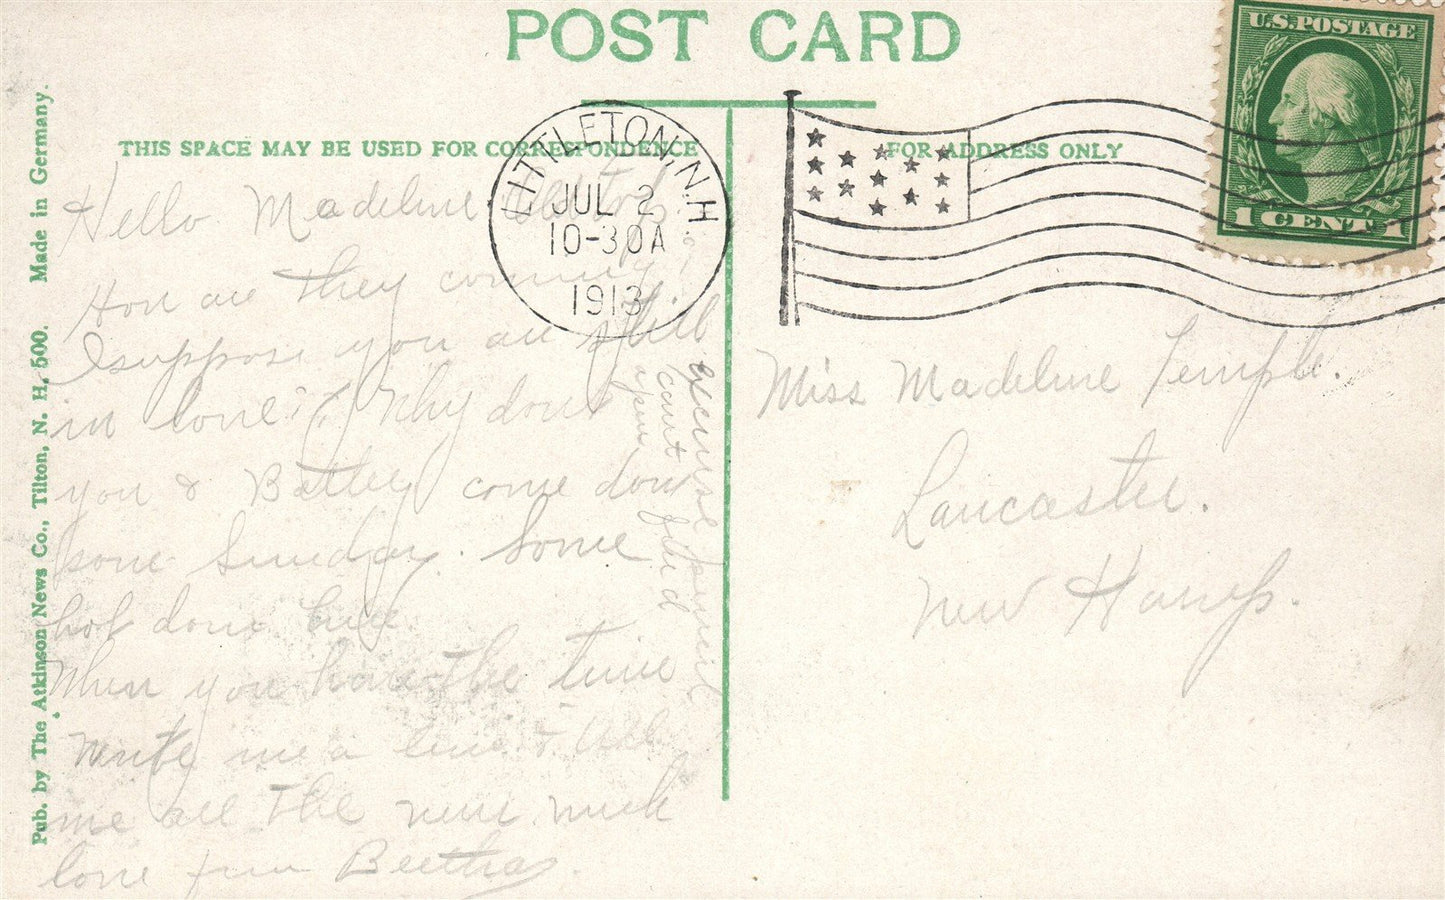 POST CARD
THIS SPACE MAY BE USED FOR CORRESPONDENCE
FOR ADDRESS ONLY
U.S. POSTAGE
1 CENT 1
LITTLETON, N.H.
JUL 2
10-30A
1913
Pub. by The Atkinson News Co., Tilton, N. H. 500. Made in Germany.
Hello Madeline
How are they coming
I suppose you are still
in love? Why dont
you & Battey come down
some Sunday. Some
hot down here
When you have the time
Write me a line & tell
me all the news much
love from Beetha
excuse pencil
cant find
pen
Miss Madeline Temple.
Lancaster.
New Hamps.